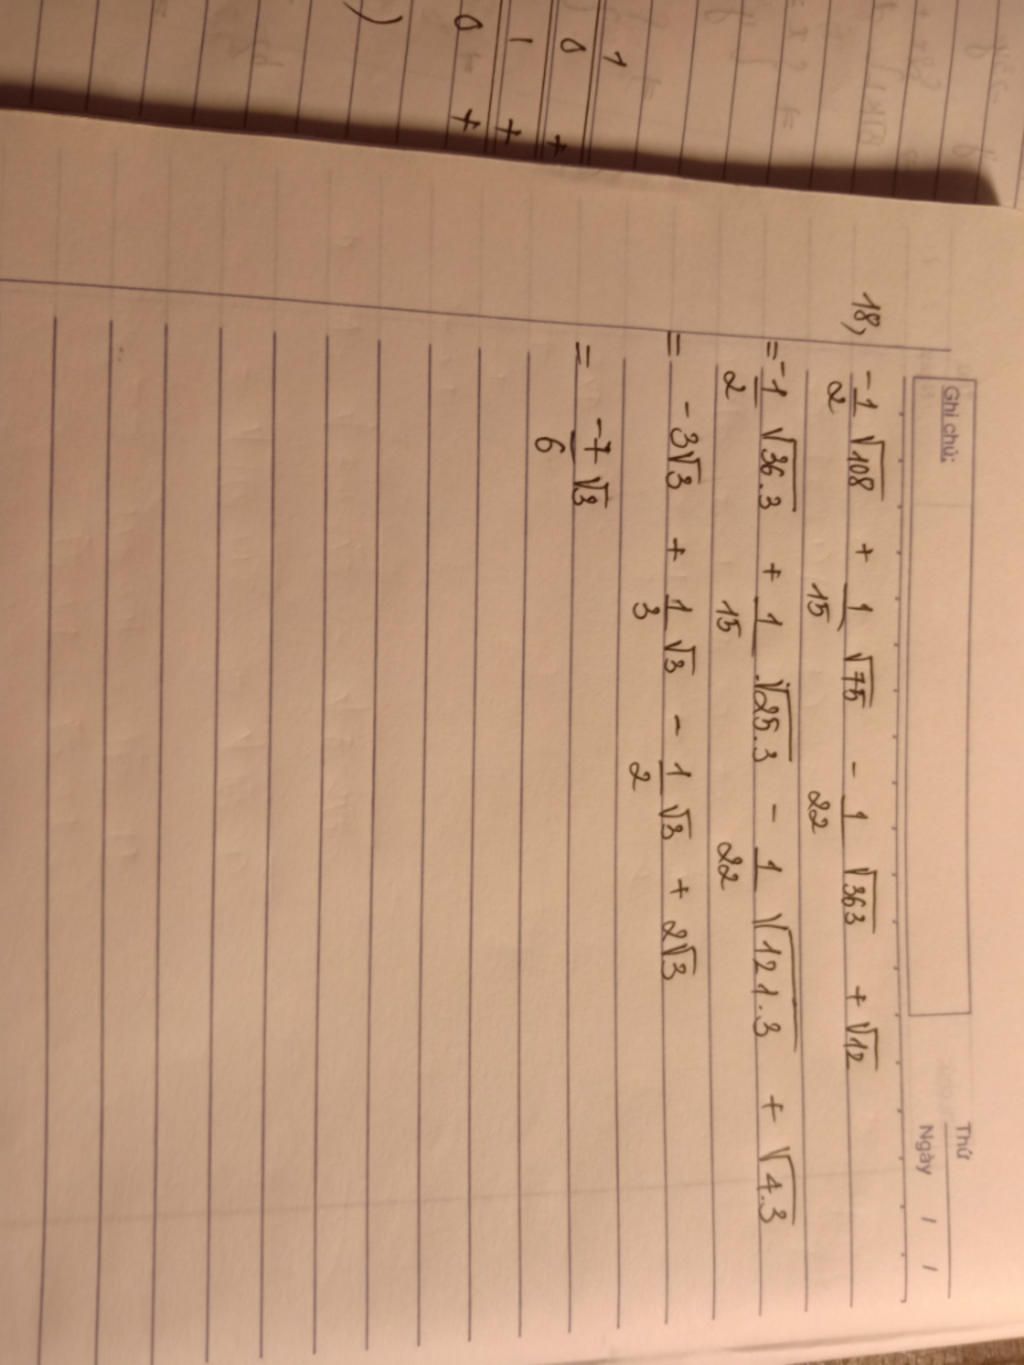 Ghi chú:
Thứ
Ngày / /
18, -1/2 √108 + 1/15 √75 - 1/22 √363 + √12
= -1/2 √36.3 + 1/15 . √25.3 - 1/22 √121.3 + √4.3
= -3√3 + 1/3 √3 - 1/2 √3 + 2√3
= -7/6 √3